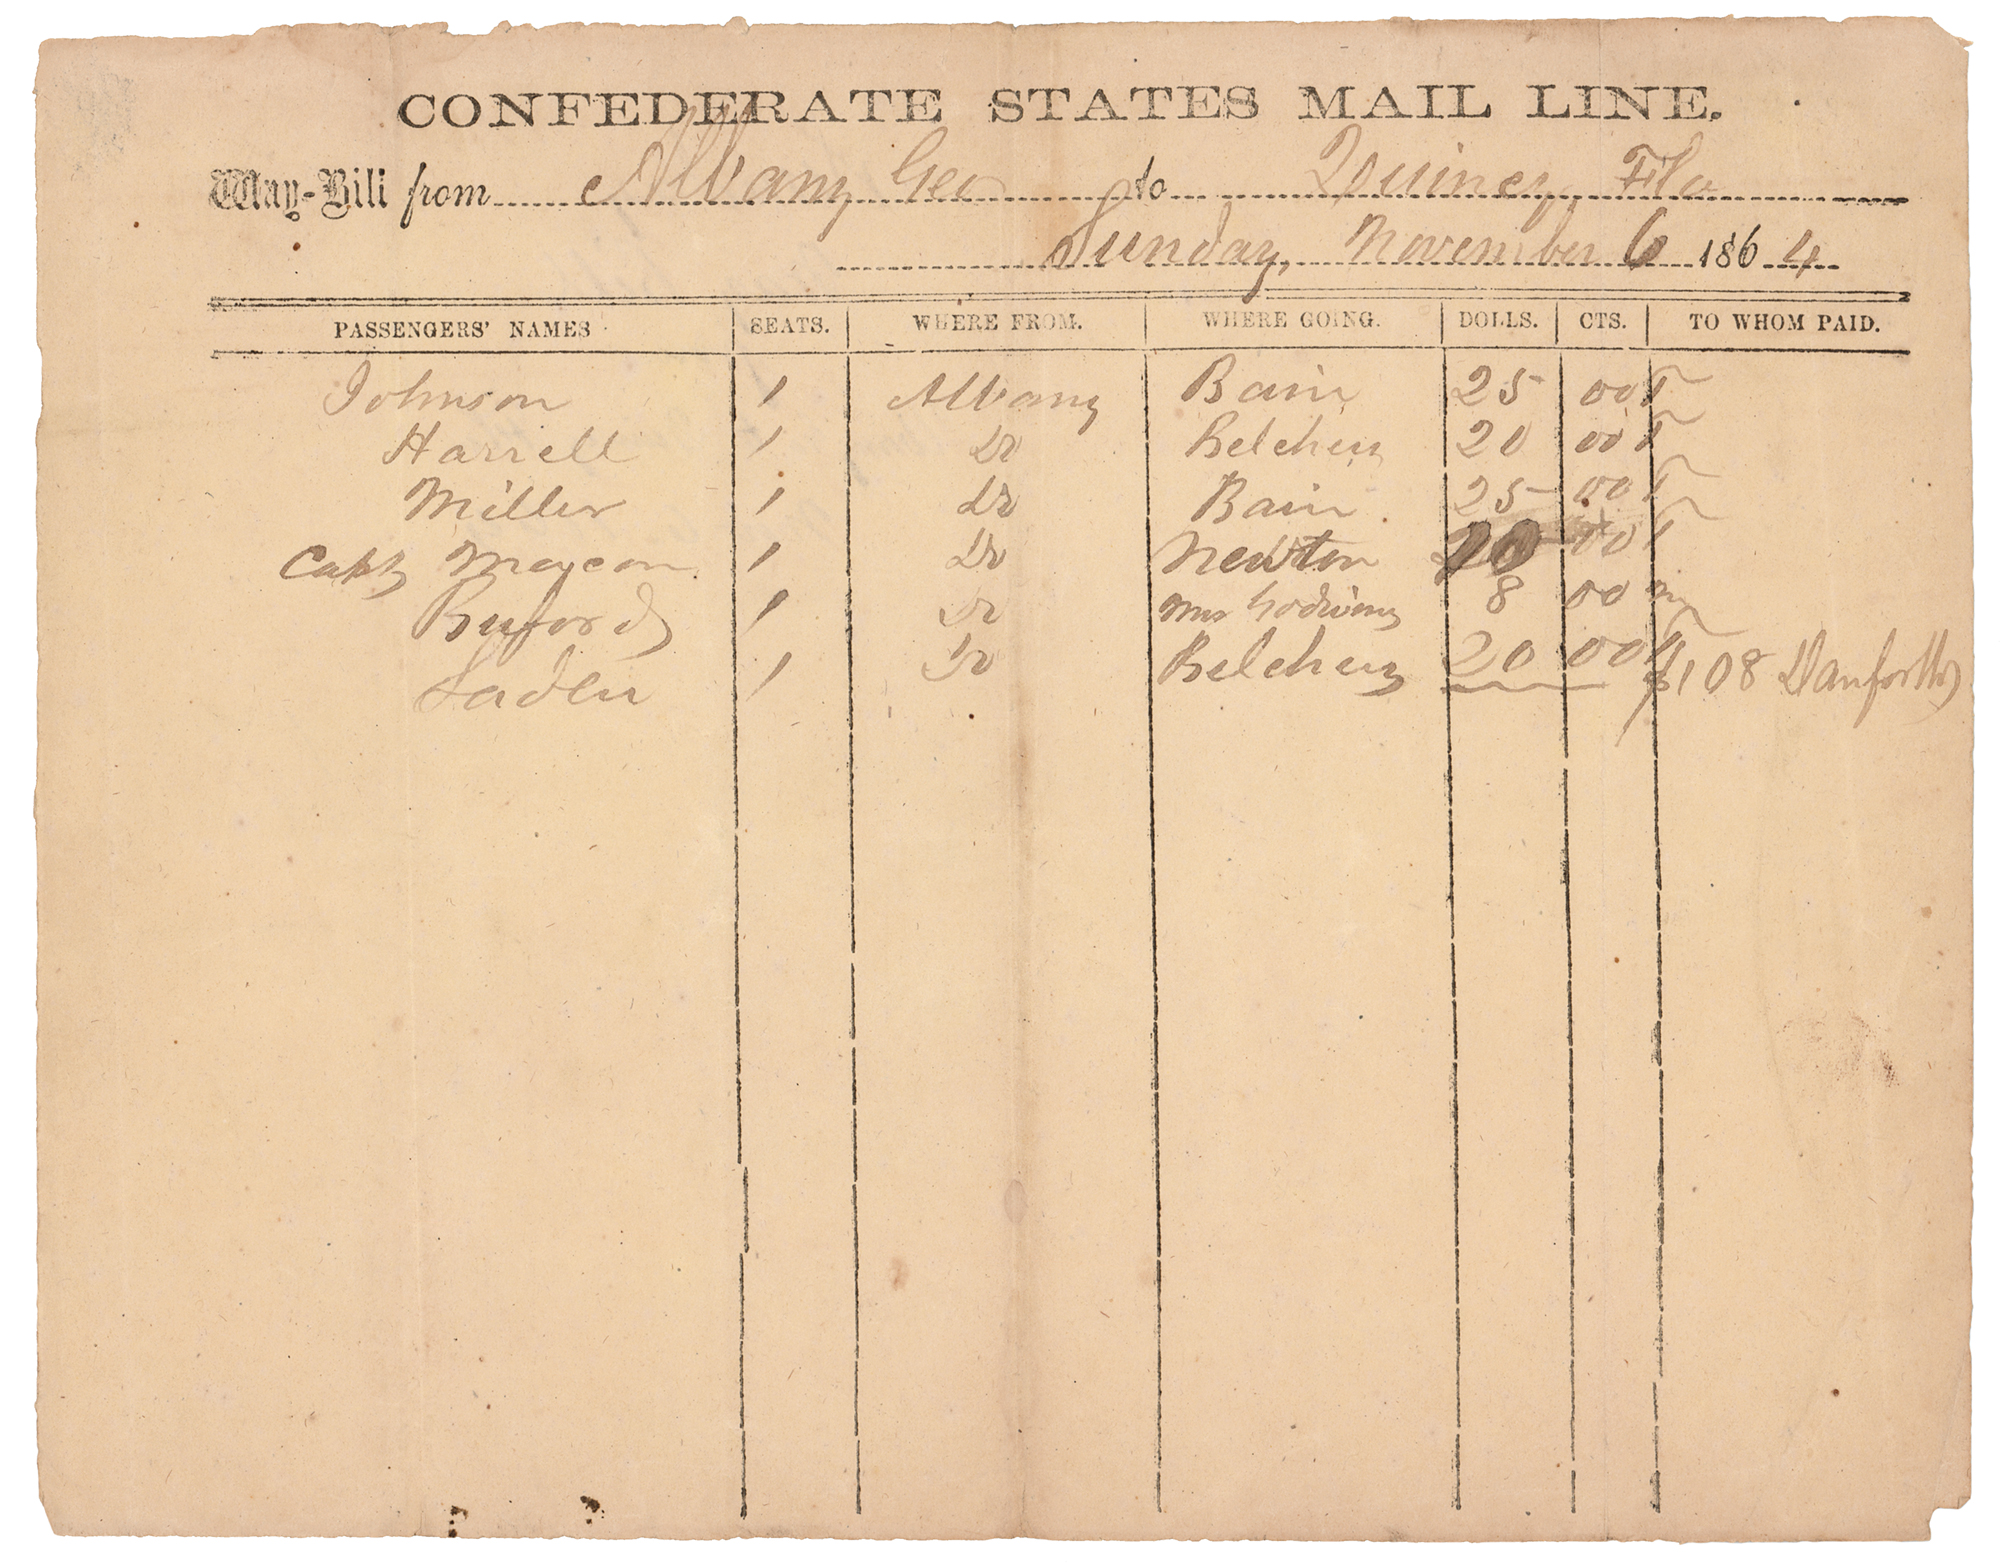 CONFEDERATE STATES MAIL LINE.
Way-Bill from Albany Geo to Quincy Fla
Sunday, November 6 1864
PASSENGERS' NAMES SEATS. WHERE FROM. WHERE GOING. DOLLS. CTS. TO WHOM PAID.
Johnson 1 Albany Bain 25 00
Harrell 1 Do Belcher 20 00
Miller 1 Do Bain 25 00
Capt 1 Do Newton 00
Buford 1 Do Mrs 8 00
1 Do Belcher 20 00 $108 Danforth